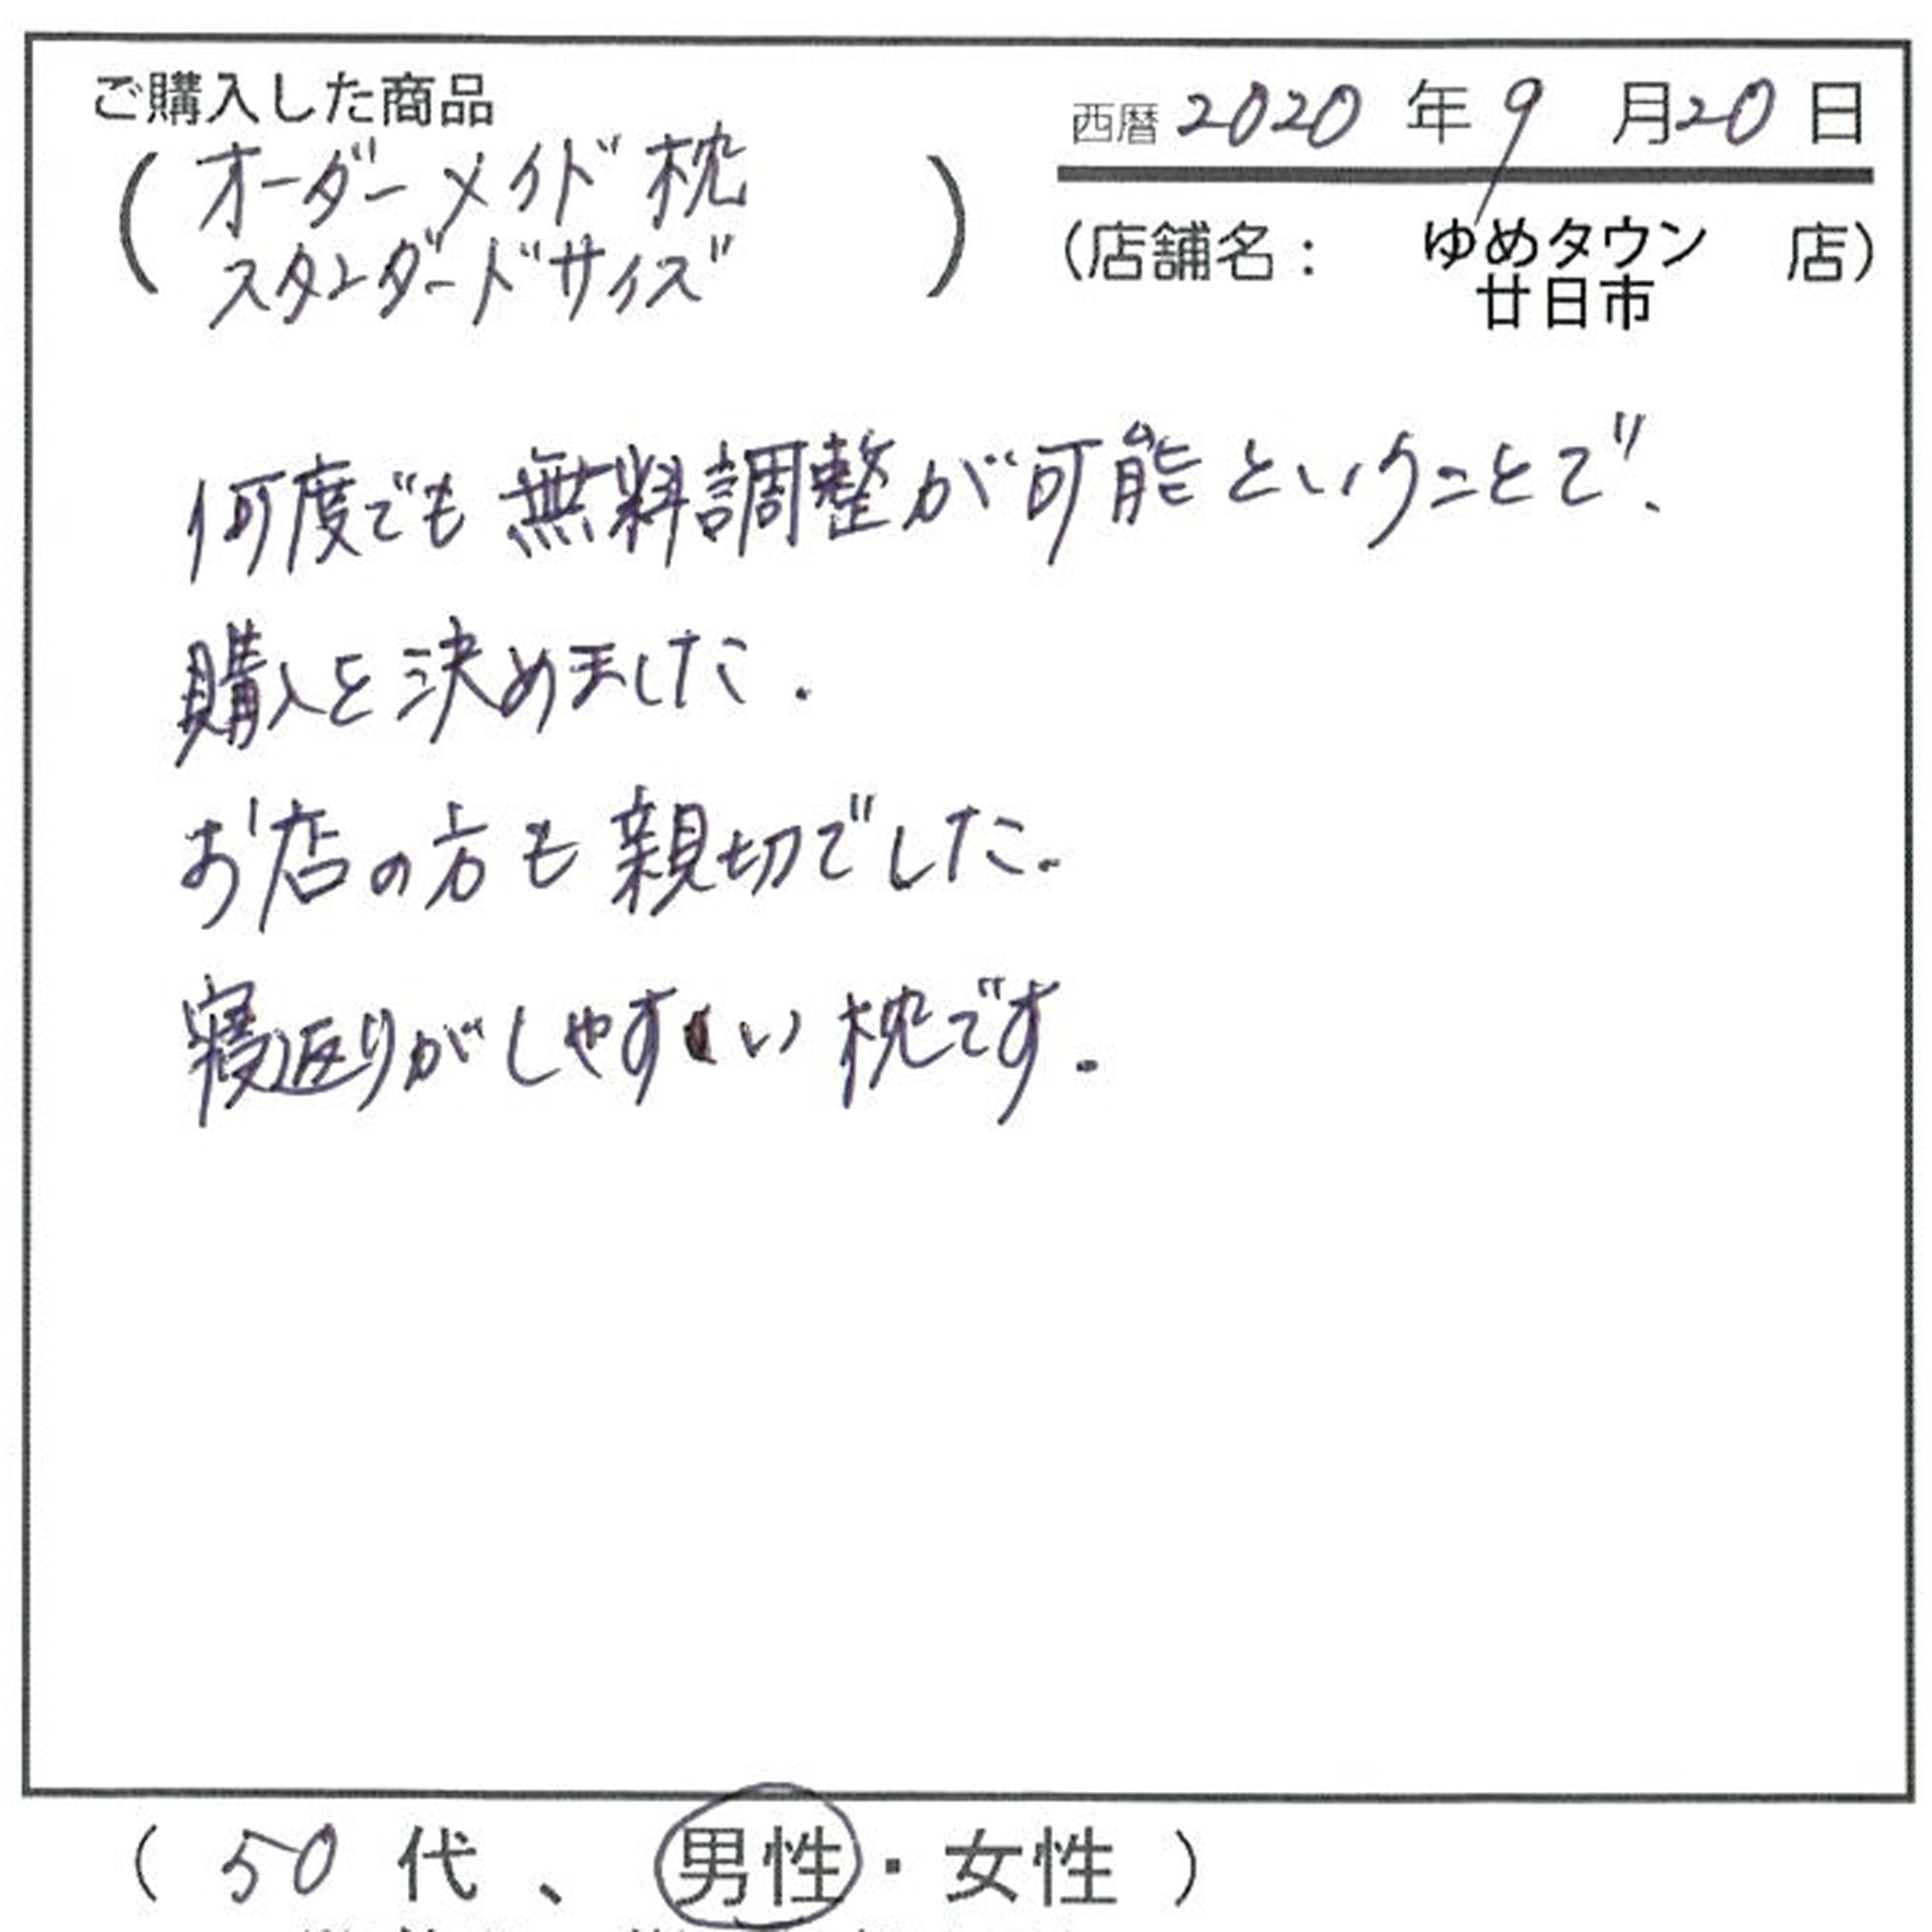 ご購入した商品
(オーダーメイド枕
スタンダードサイズ)
西暦2020年9月20日
(店舗名: ゆめタウン 店)
廿日市
何度でも無料調整が可能ということで、
購入を決めました.
お店の方も親切でした.
寝返りがしやすい枕です.
( 50代、男性・女性 )